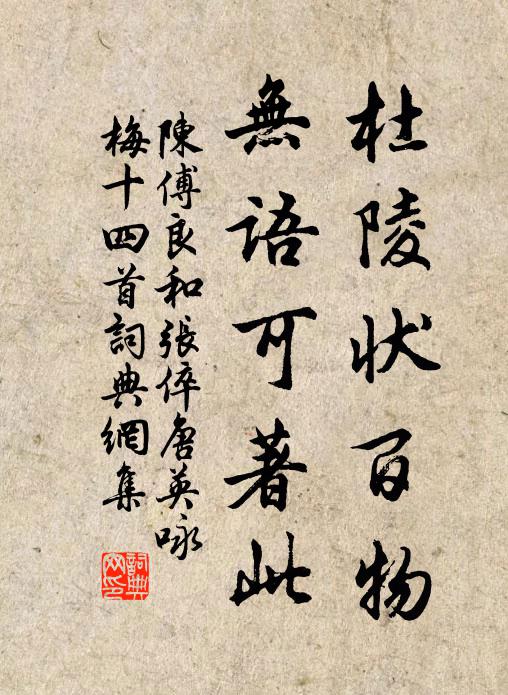 杜陵状百物
無語可著此
陳傅良和張倅唐英咏
梅十四首詞典網集
詞典
网印